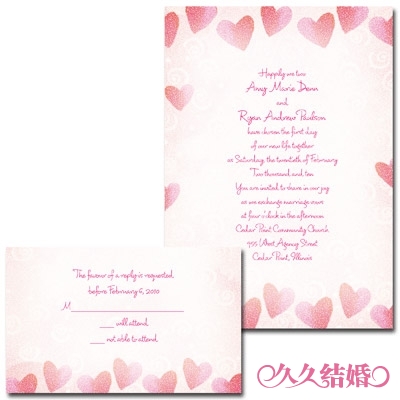 Happily we two
Amy Marie Denn
and
Ryan Andrew Paulson
have chosen the first day
of our new life together
as Saturday, the twentieth of February
Two thousand and ten
You are invited to share in our joy
as we exchange marriage vows
at four o'clock in the afternoon
Cedar Point Community Church
955 West Agency Street
Cedar Point, Illinois
The favour of a reply is requested
before February 6, 2010
M
will attend
not able to attend
久久结婚